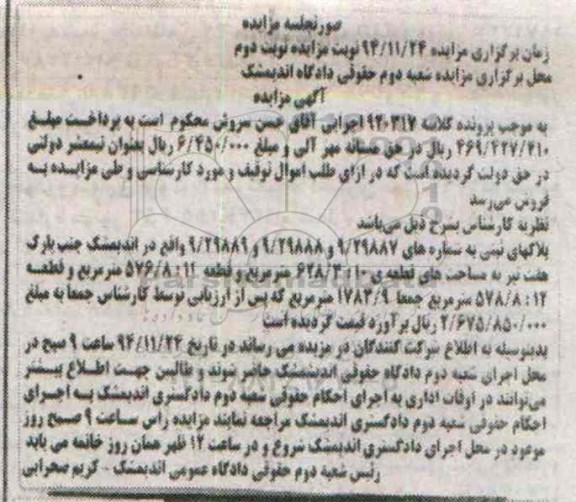 صورتجلسه مزایده
زمان برگزاری مزایده ۹۴/۱۱/۲۴ نوبت مزایده نوبت دوم
محل برگزاری مزایده شعبه دوم حقوقی دادگاه اندیمشک
آگهی مزایده
به موجب پرونده کلاسه ۹۴۰۳۱۷ اجرایی آقای حسن سروش محکوم است به پرداخت مبلغ
۴۶۹/۴۲۷/۴۱۰ ریال در حق مستانه مهر آلی و مبلغ ۶/۴۵۰/۰۰۰ ریال بعنوان نیمعشر دولتی
در حق دولت گردیده است که در ازای طلب اموال توقیف و مورد کارشناسی و طی مزایده به
فروش می رسد
نظریه کارشناس بشرح ذیل می‌باشد
پلاکهای ثبتی به شماره های ۹/۲۹۸۸۷ و ۹/۲۹۸۸۸ و ۹/۲۹۸۸۹ واقع در اندیمشک جنب پارک
هفت تیر به مساحت های قطعه ی ۱۰: ۶۲۸/۳ مترمربع و قطعه ۱۱: ۵۷۶/۸ مترمربع و قطعه
۱۲: ۵۷۸/۸ مترمربع جمعا ۱۷۸۳/۹ مترمربع که پس از ارزیابی توسط کارشناس جمعا به مبلغ
۲/۶۷۵/۸۵۰/۰۰۰ ریال برآورد قیمت گردیده است
بدینوسیله به اطلاع شرکت کنندگان در مزیده می رساند در تاریخ ۹۴/۱۱/۲۴ ساعت ۹ صبح در
محل اجرای شعبه دوم دادگاه حقوقی اندیشمشک حاضر شوند و طالبین جهت اطلاع بیشتر
می‌توانند در اوقات اداری به اجرای احکام حقوقی شعبه دوم دادگستری اندیمشک به اجرای
احکام حقوقی شعبه دوم دادگستری اندیمشک مراجعه نمایند مزایده راس ساعت ۹ صبح روز
موعود در محل اجرای دادگستری اندیمشک شروع و در ساعت ۱۲ ظهر همان روز خاتمه می یابد
رئیس شعبه دوم حقوقی دادگاه عمومی اندیمشک - کریم صحرایی